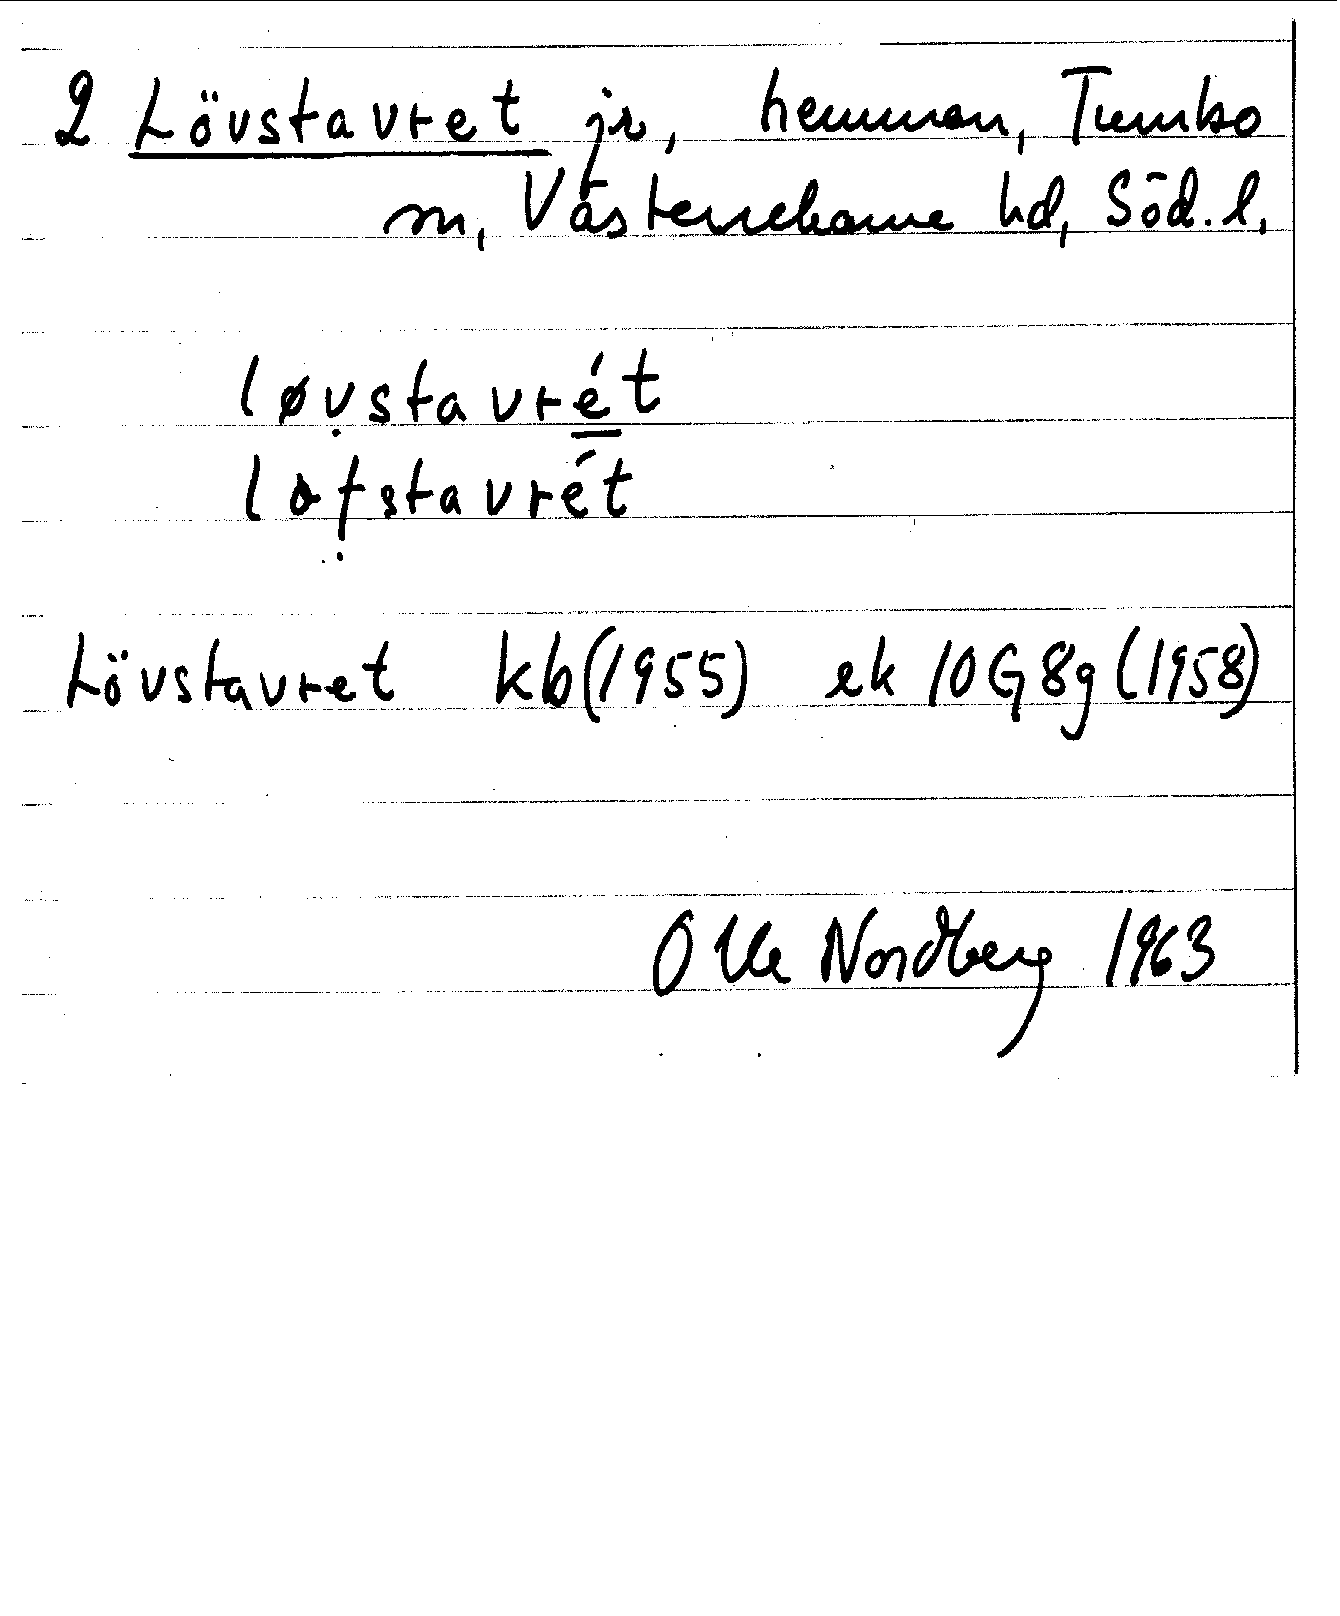 2 Lövstavret jr, hemman, Tumbo
sn, Västerrekarne hd, Söd. l.
løṿstavrét
lofstavrét
Lövstavret kb (1955) ek 10G 8g (1958)
Olle Nordberg 1963